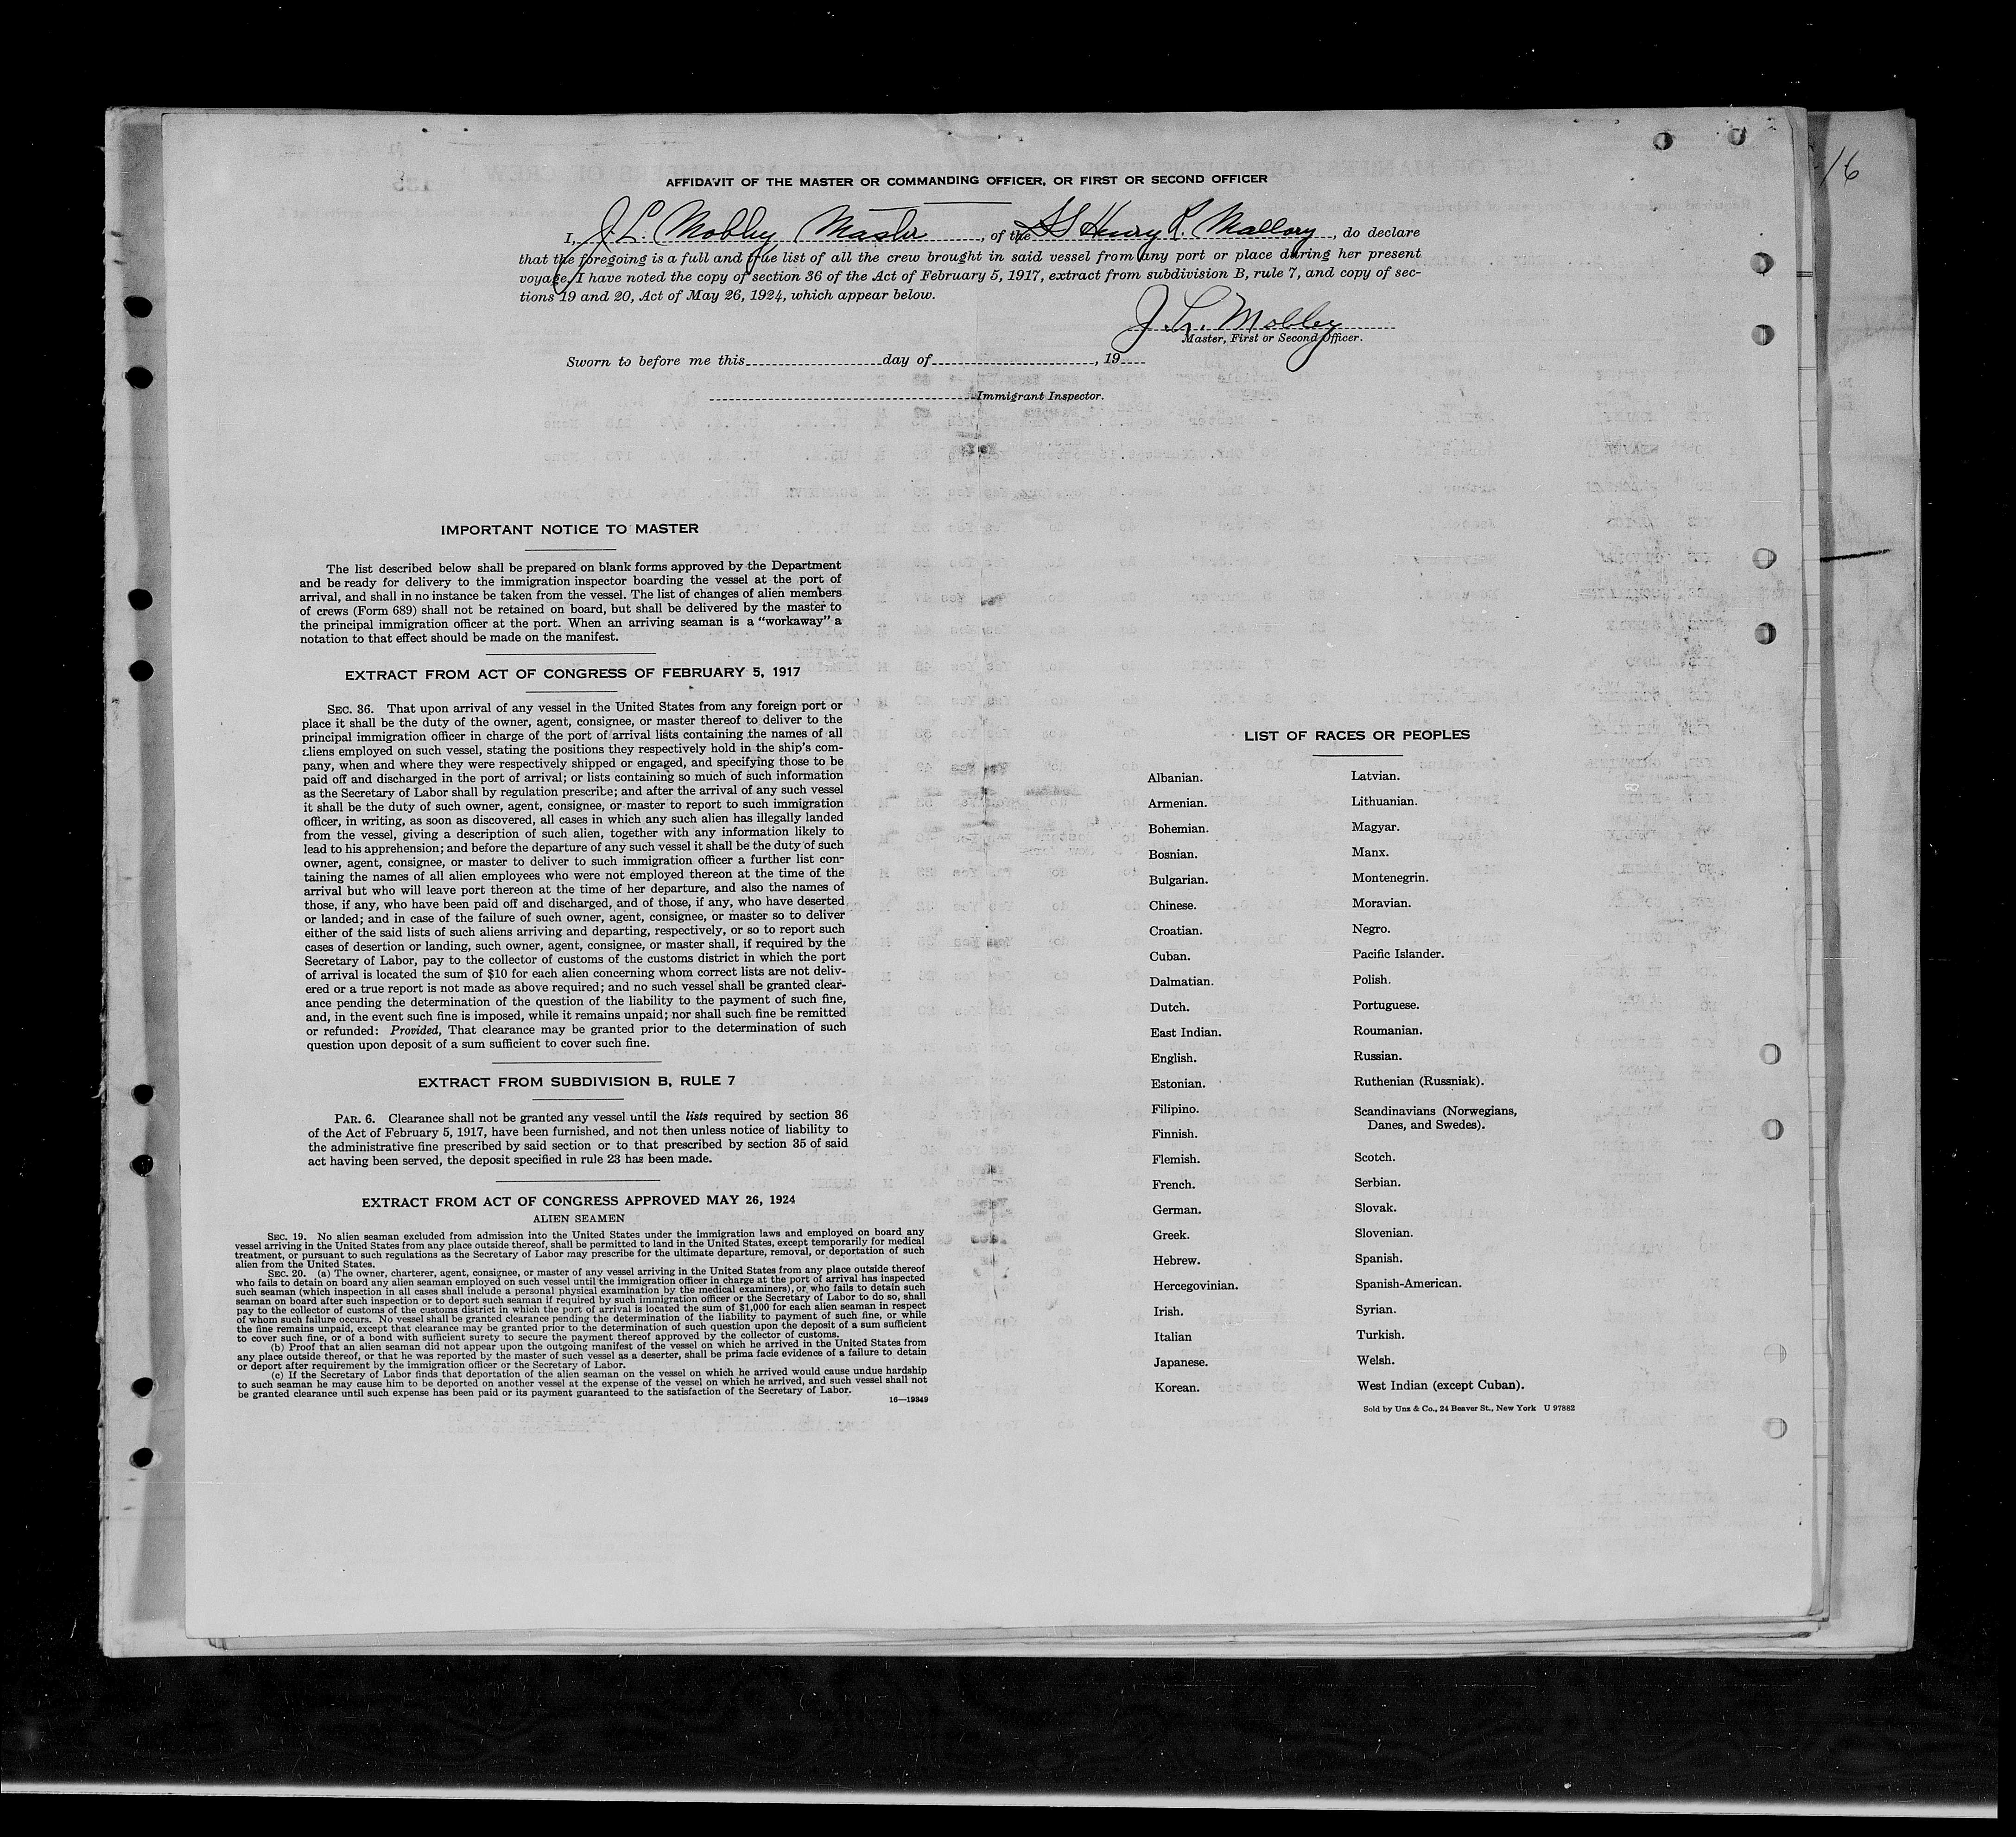 16
AFFIDAVIT OF THE MASTER OR COMMANDING OFFICER, OR FIRST OR SECOND OFFICER
I, J. L. Mobley Master, of the SS Henry R. Mallory, do declare
that the foregoing is a full and true list of all the crew brought in said vessel from any port or place during her present
voyage. I have noted the copy of section 36 of the Act of February 5, 1917, extract from subdivision B, rule 7, and copy of sec-
tions 19 and 20, Act of May 26, 1924, which appear below.
J. L. Mobley
Master, First or Second Officer.
Sworn to before me this day of , 19
Immigrant Inspector.
IMPORTANT NOTICE TO MASTER
The list described below shall be prepared on blank forms approved by the Department
and be ready for delivery to the immigration inspector boarding the vessel at the port of
arrival, and shall in no instance be taken from the vessel. The list of changes of alien members
of crews (Form 689) shall not be retained on board, but shall be delivered by the master to
the principal immigration officer at the port. When an arriving seaman is a "workaway" a
notation to that effect should be made on the manifest.
EXTRACT FROM ACT OF CONGRESS OF FEBRUARY 5, 1917
SEC. 36. That upon arrival of any vessel in the United States from any foreign port or
place it shall be the duty of the owner, agent, consignee, or master thereof to deliver to the
principal immigration officer in charge of the port of arrival lists containing the names of all
aliens employed on such vessel, stating the positions they respectively hold in the ship's com-
pany, when and where they were respectively shipped or engaged, and specifying those to be
paid off and discharged in the port of arrival; or lists containing so much of such information
as the Secretary of Labor shall by regulation prescribe; and after the arrival of any such vessel
it shall be the duty of such owner, agent, consignee, or master to report to such immigration
officer, in writing, as soon as discovered, all cases in which any such alien has illegally landed
from the vessel, giving a description of such alien, together with any information likely to
lead to his apprehension; and before the departure of any such vessel it shall be the duty of such
owner, agent, consignee, or master to deliver to such immigration officer a further list con-
taining the names of all alien employees who were not employed thereon at the time of the
arrival but who will leave port thereon at the time of her departure, and also the names of
those, if any, who have been paid off and discharged, and of those, if any, who have deserted
or landed; and in case of the failure of such owner, agent, consignee, or master so to deliver
either of the said lists of such aliens arriving and departing, respectively, or so to report such
cases of desertion or landing, such owner, agent, consignee, or master shall, if required by the
Secretary of Labor, pay to the collector of customs of the customs district in which the port
of arrival is located the sum of $10 for each alien concerning whom correct lists are not deliv-
ered or a true report is not made as above required; and no such vessel shall be granted clear-
ance pending the determination of the question of the liability to the payment of such fine,
and, in the event such fine is imposed, while it remains unpaid; nor shall such fine be remitted
or refunded: Provided, That clearance may be granted prior to the determination of such
question upon deposit of a sum sufficient to cover such fine.
EXTRACT FROM SUBDIVISION B, RULE 7
PAR. 6. Clearance shall not be granted any vessel until the lists required by section 36
of the Act of February 5, 1917, have been furnished, and not then unless notice of liability to
the administrative fine prescribed by said section or to that prescribed by section 35 of said
act having been served, the deposit specified in rule 23 has been made.
EXTRACT FROM ACT OF CONGRESS APPROVED MAY 26, 1924
ALIEN SEAMEN
SEC. 19. No alien seaman excluded from admission into the United States under the immigration laws and employed on board any
vessel arriving in the United States from any place outside thereof, shall be permitted to land in the United States, except temporarily for medical
treatment, or pursuant to such regulations as the Secretary of Labor may prescribe for the ultimate departure, removal, or deportation of such
alien from the United States.
SEC. 20. (a) The owner, charterer, agent, consignee, or master of any vessel arriving in the United States from any place outside thereof
who fails to detain on board any alien seaman employed on such vessel until the immigration officer in charge at the port of arrival has inspected
such seaman (which inspection in all cases shall include a personal physical examination by the medical examiners), or who fails to detain such
seaman on board after such inspection or to deport such seaman if required by such immigration officer or the Secretary of Labor to do so, shall
pay to the collector of customs of the customs district in which the port of arrival is located the sum of $1,000 for each alien seaman in respect
of whom such failure occurs. No vessel shall be granted clearance pending the determination of the liability to payment of such fine, or while
the fine remains unpaid, except that clearance may be granted prior to the determination of such question upon the deposit of a sum sufficient
to cover such fine, or of a bond with sufficient surety to secure the payment thereof approved by the collector of customs.
(b) Proof that an alien seaman did not appear upon the outgoing manifest of the vessel on which he arrived in the United States from
any place outside thereof, or that he was reported by the master of such vessel as a deserter, shall be prima facie evidence of a failure to detain
or deport after requirement by the immigration officer or the Secretary of Labor.
(c) If the Secretary of Labor finds that deportation of the alien seaman on the vessel on which he arrived would cause undue hardship
to such seaman he may cause him to be deported on another vessel at the expense of the vessel on which he arrived, and such vessel shall not
be granted clearance until such expense has been paid or its payment guaranteed to the satisfaction of the Secretary of Labor.
16—19349
LIST OF RACES OR PEOPLES
Albanian.
Armenian.
Bohemian.
Bosnian.
Bulgarian.
Chinese.
Croatian.
Cuban.
Dalmatian.
Dutch.
East Indian.
English.
Estonian.
Filipino.
Finnish.
Flemish.
French.
German.
Greek.
Hebrew.
Hercegovinian.
Irish.
Italian
Japanese.
Korean.
Latvian.
Lithuanian.
Magyar.
Manx.
Montenegrin.
Moravian.
Negro.
Pacific Islander.
Polish.
Portuguese.
Roumanian.
Russian.
Ruthenian (Russniak).
Scandinavians (Norwegians,
Danes, and Swedes).
Scotch.
Serbian.
Slovak.
Slovenian.
Spanish.
Spanish-American.
Syrian.
Turkish.
Welsh.
West Indian (except Cuban).
Sold by Unz & Co., 24 Beaver St., New York U 97882